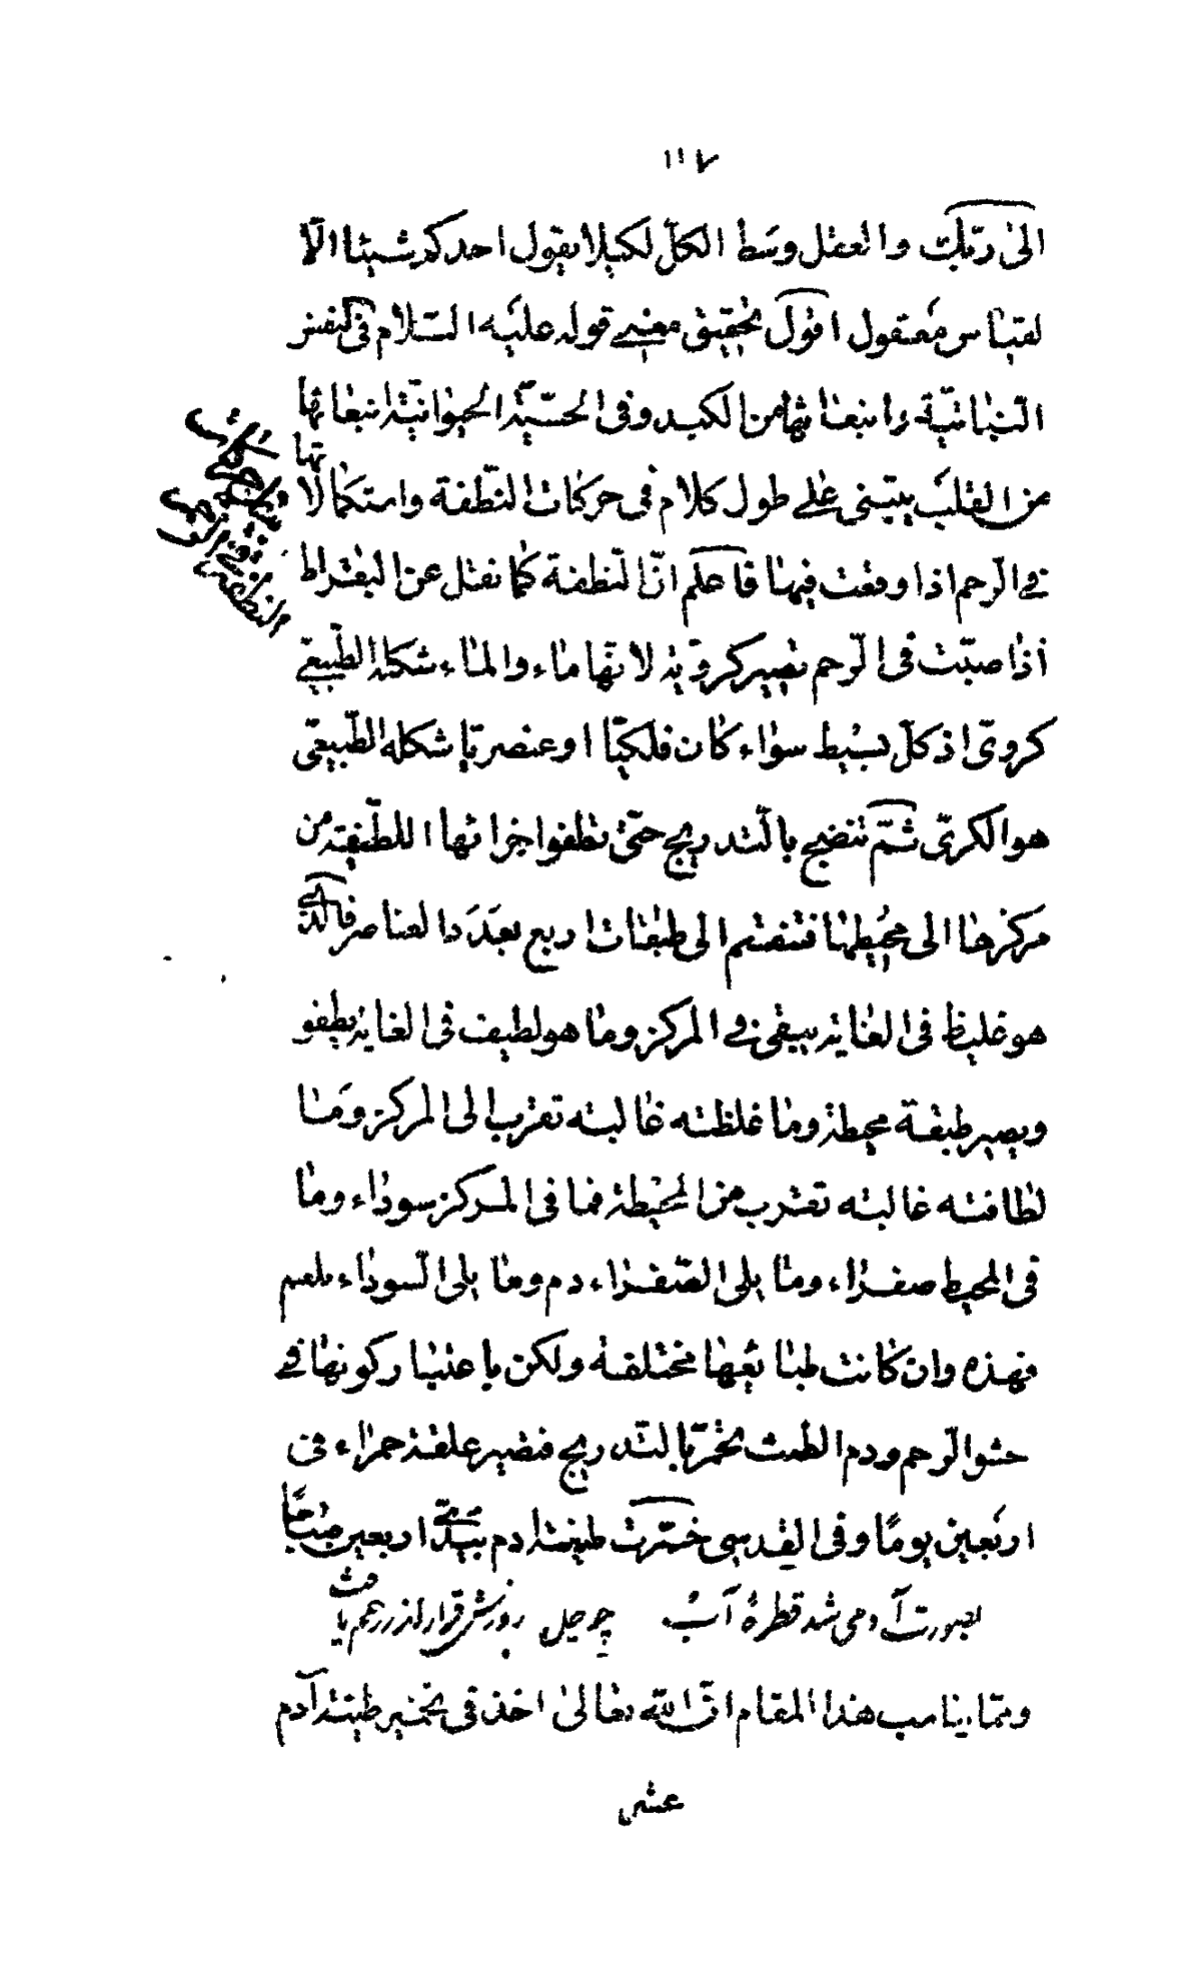 ١١٧
الى ربك والعقل وسط الكلّ لكيلا يقول احدكم شيئا الّا
لقياس معقول اقول تحقيق معنى قوله عليه السّلام فى النفس
النّباتيّة وانبعاثها من الكبد وفى الحسّيّة الحيوانيّة انبعاثها
من القلب يبتنى على طول كلام فى حركات النّطفة واستكمالاتها
فى الرّحم اذا وقعت فيها فاعلم انّ النّطفة كما نقل عن البقراط
اذا صبّت فى الرّحم تصير كرويّة لانّها ماء والماء شكله الطّبيعى
كروىّ اذ كلّ بسيط سواء كان فلكيّا او عنصريّا شكله الطّبيعىّ
هو الكرىّ ثمّ تنضج بالتّدريج حتّى تطفو اجزائها اللطيفة من
مركزها الى محيطها فتنقسم الى طبقات اربع بعدد العناصر فالّذى
هو غليظ فى الغاية يبقى فى المركز وما هو لطيف فى الغاية يطفو
ويصير طبقة محيطة وما غلظته غالبته تقرب الى المركز وما
لطافته غالبته تقترب من المحيطة فما فى المركز سوداء وما
فى المحيط صفراء، وما يلى الصّفراء، دم وما يلى السّوداء بلغم
فهذه وان كانت طبائعها مختلفة ولكن باعتبار كونها فى
حشو الرّحم ودم الطمث تخمّر بالتّدريج فتصير علقة حمراء فى
اربعين يومًا وفى القدسى خمّرت طينة ادم بيدىّ اربعين صباحًا
بصورت آدمى شد قطرهٔ آب چو چل روزش قرار اندر رحم يافت
وممّا يناسب هذا المقام انّ الله تعالى اخذ فى تخمير طينة آدم
عشر
النطفة